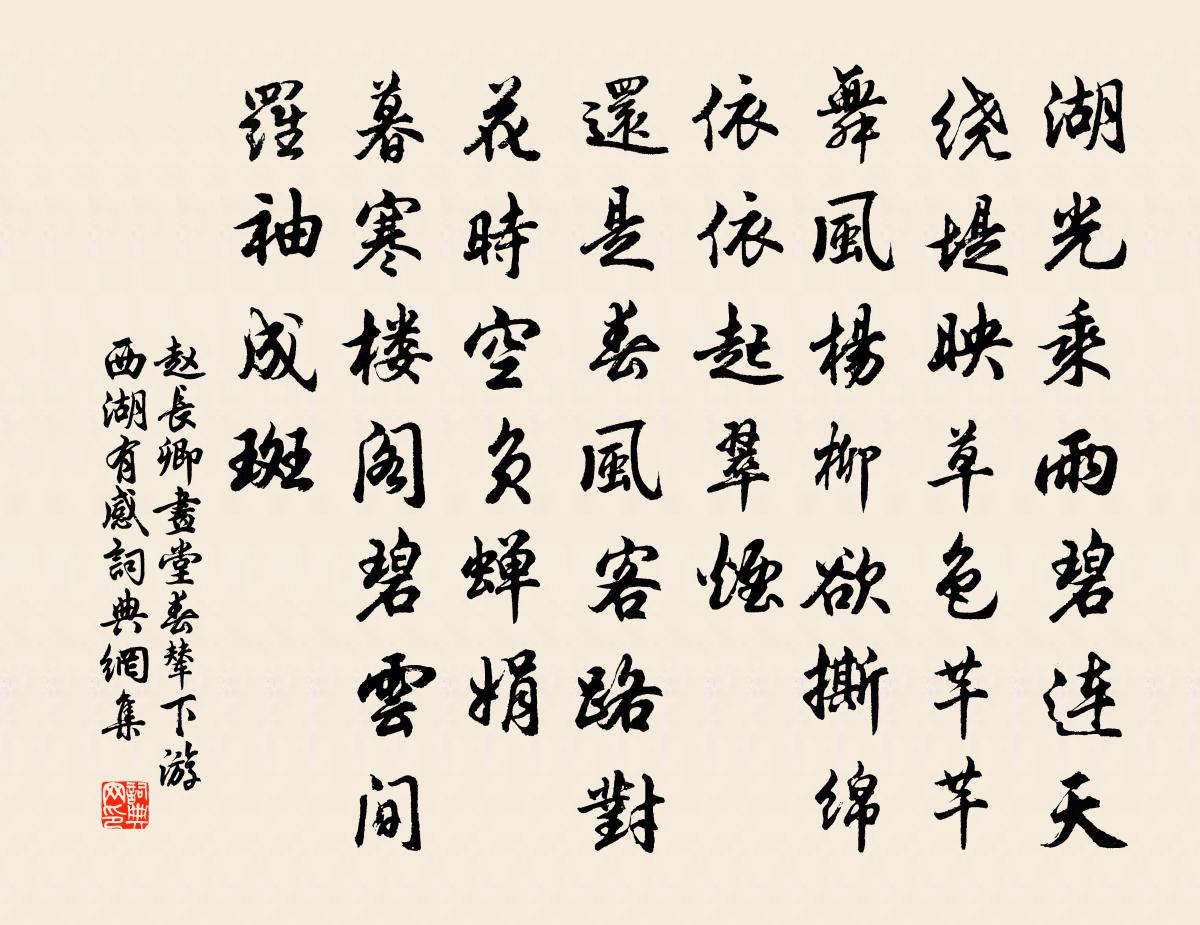 湖光乘雨碧连天
绕堤映草色芊芊
舞風楊柳欲撕绵
依依起翠煙
還是春風客路對
花時空负蝉娟
暮寒楼阁碧雲间
羅袖成斑
赵長卿畫堂春輦下游
西湖有感詞典網集
詞典网印